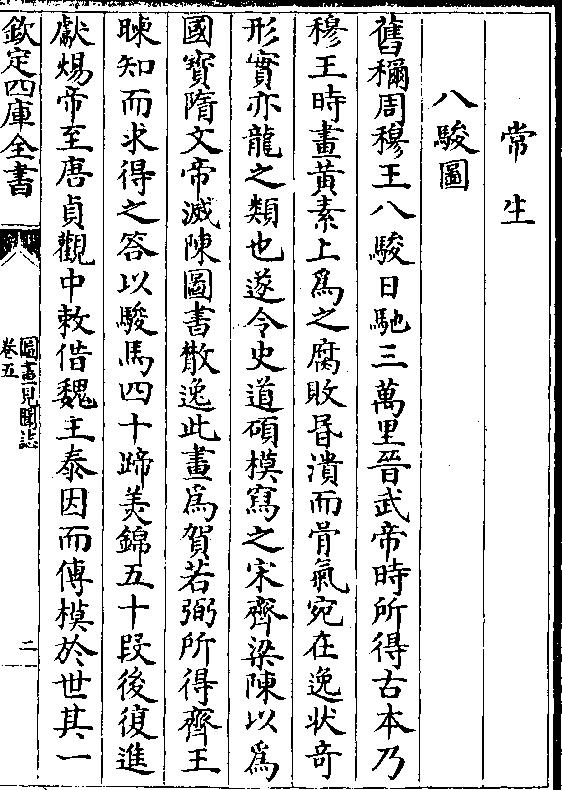 常生
八駿圖
舊稱周穆王八駿日馳三萬里晉武帝時所得古本乃
穆王時畫黃素上爲之腐敗昏潰而骨氣宛在逸狀奇
形實亦龍之類也遂令史道碩模寫之宋齊梁陳以爲
國寳隋文帝滅陳圖書散逸此畫爲賀若弼所得齊王
暕知而求得之答以駿馬四十蹄美錦五十叚後復進
獻煬帝至唐貞觀中敕借魏王泰因而傳模於世其一
欽定四庫全書
圖畫見聞誌
卷五
二